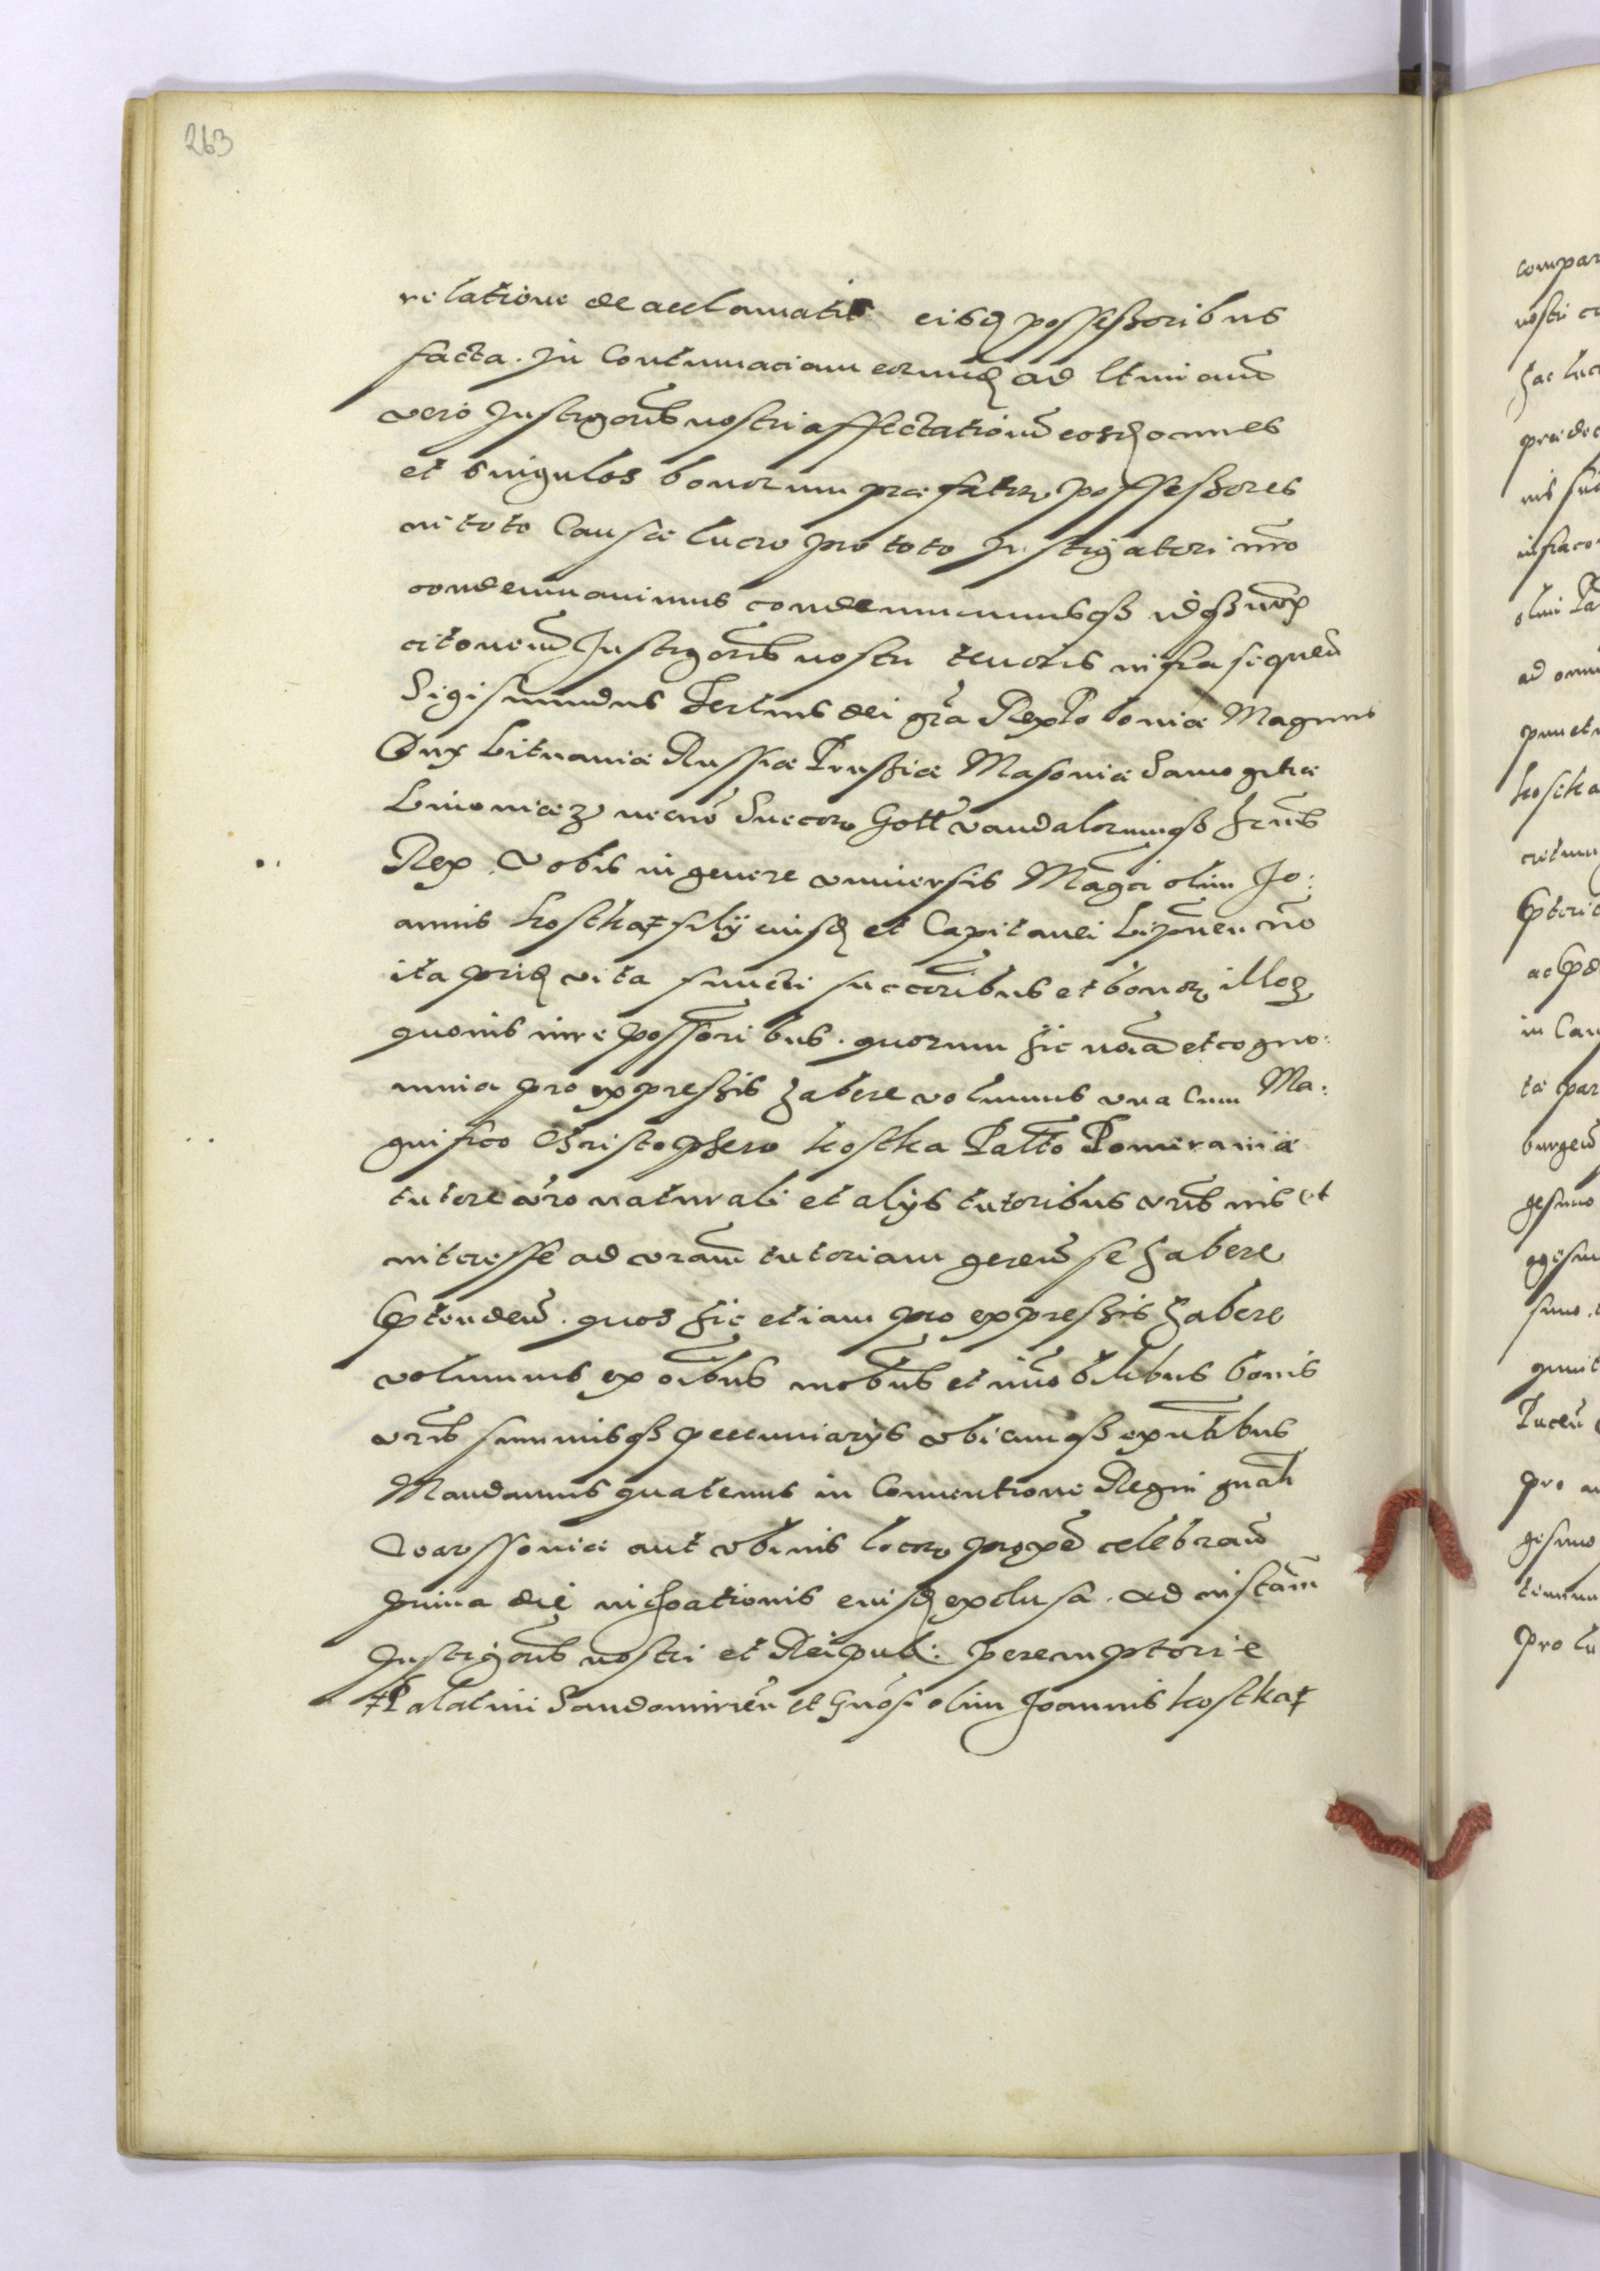 263
relatione de acclamatis eisd possessoribus
facta. In Contumaciam eorund ad ltimam
vero Instigoris nostri affectationem eosd omnes
et singulos bonorum praefator possessores
in toto Causae lucro pro toto Instigatori nro
condemnavimus condemnamusq idq
citonem Instigoris nostri tenoris infra sequen
Sigismundus Tertius dei gra Rex Poloniae Magnus
Dux Lituaniae Russiae Prussiae Masoviae Samogitiae
Livoniaeq necno Suecor Gott vandalorumq
Rex. Vobis in genere universis Magci olim Jo:
annis kostka ‡ filij eiusd et Capitanei no
ita prid vita functi succoribus et bonor illor
quovis iure possoribus. quorum hic noia et cogno:
mina pro expressis habere volumus una Cum Ma:
gnifico Christophero kostka Patto Pomeraniae
tutore vro naturali et alijs tutoribus vris ius et
interesse ad vram tutoriam geren se habere
ptenden. quos hic etiam pro expressis habere
volumus ex oibus mobus et imobilibus bonis
vris summisq pecuniarijs ubicunq expntibus
Mandamus quatenus in Conventione Regni gnali
Varssoviae aut ubivis locor prox celebran
prima die inchoationis eiusd exclusa. ad instam
Instigoris nostri et Reipub: peremptorie
‡ Palatini Sandomirien et Gnosi olim Joannis kostka ‡
compar
nostri
hac luc
praedic
infraco
olim Pa
ad omn
punct
kostka
in Cau
tae par
burgen
gesimo
simo.
pro
gesimo
pro lu